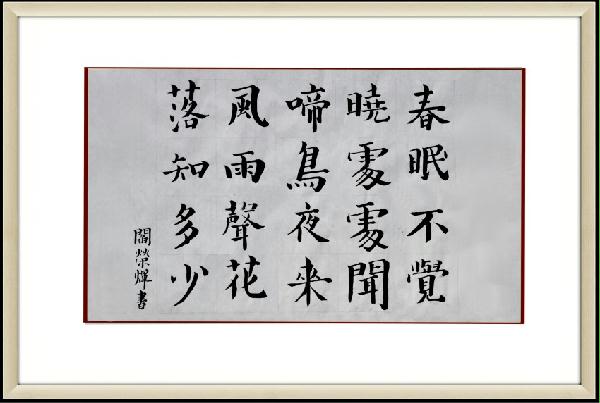 春眠不覺
曉處處聞
啼鳥夜來
風雨聲花
落知多少
閻榮輝書